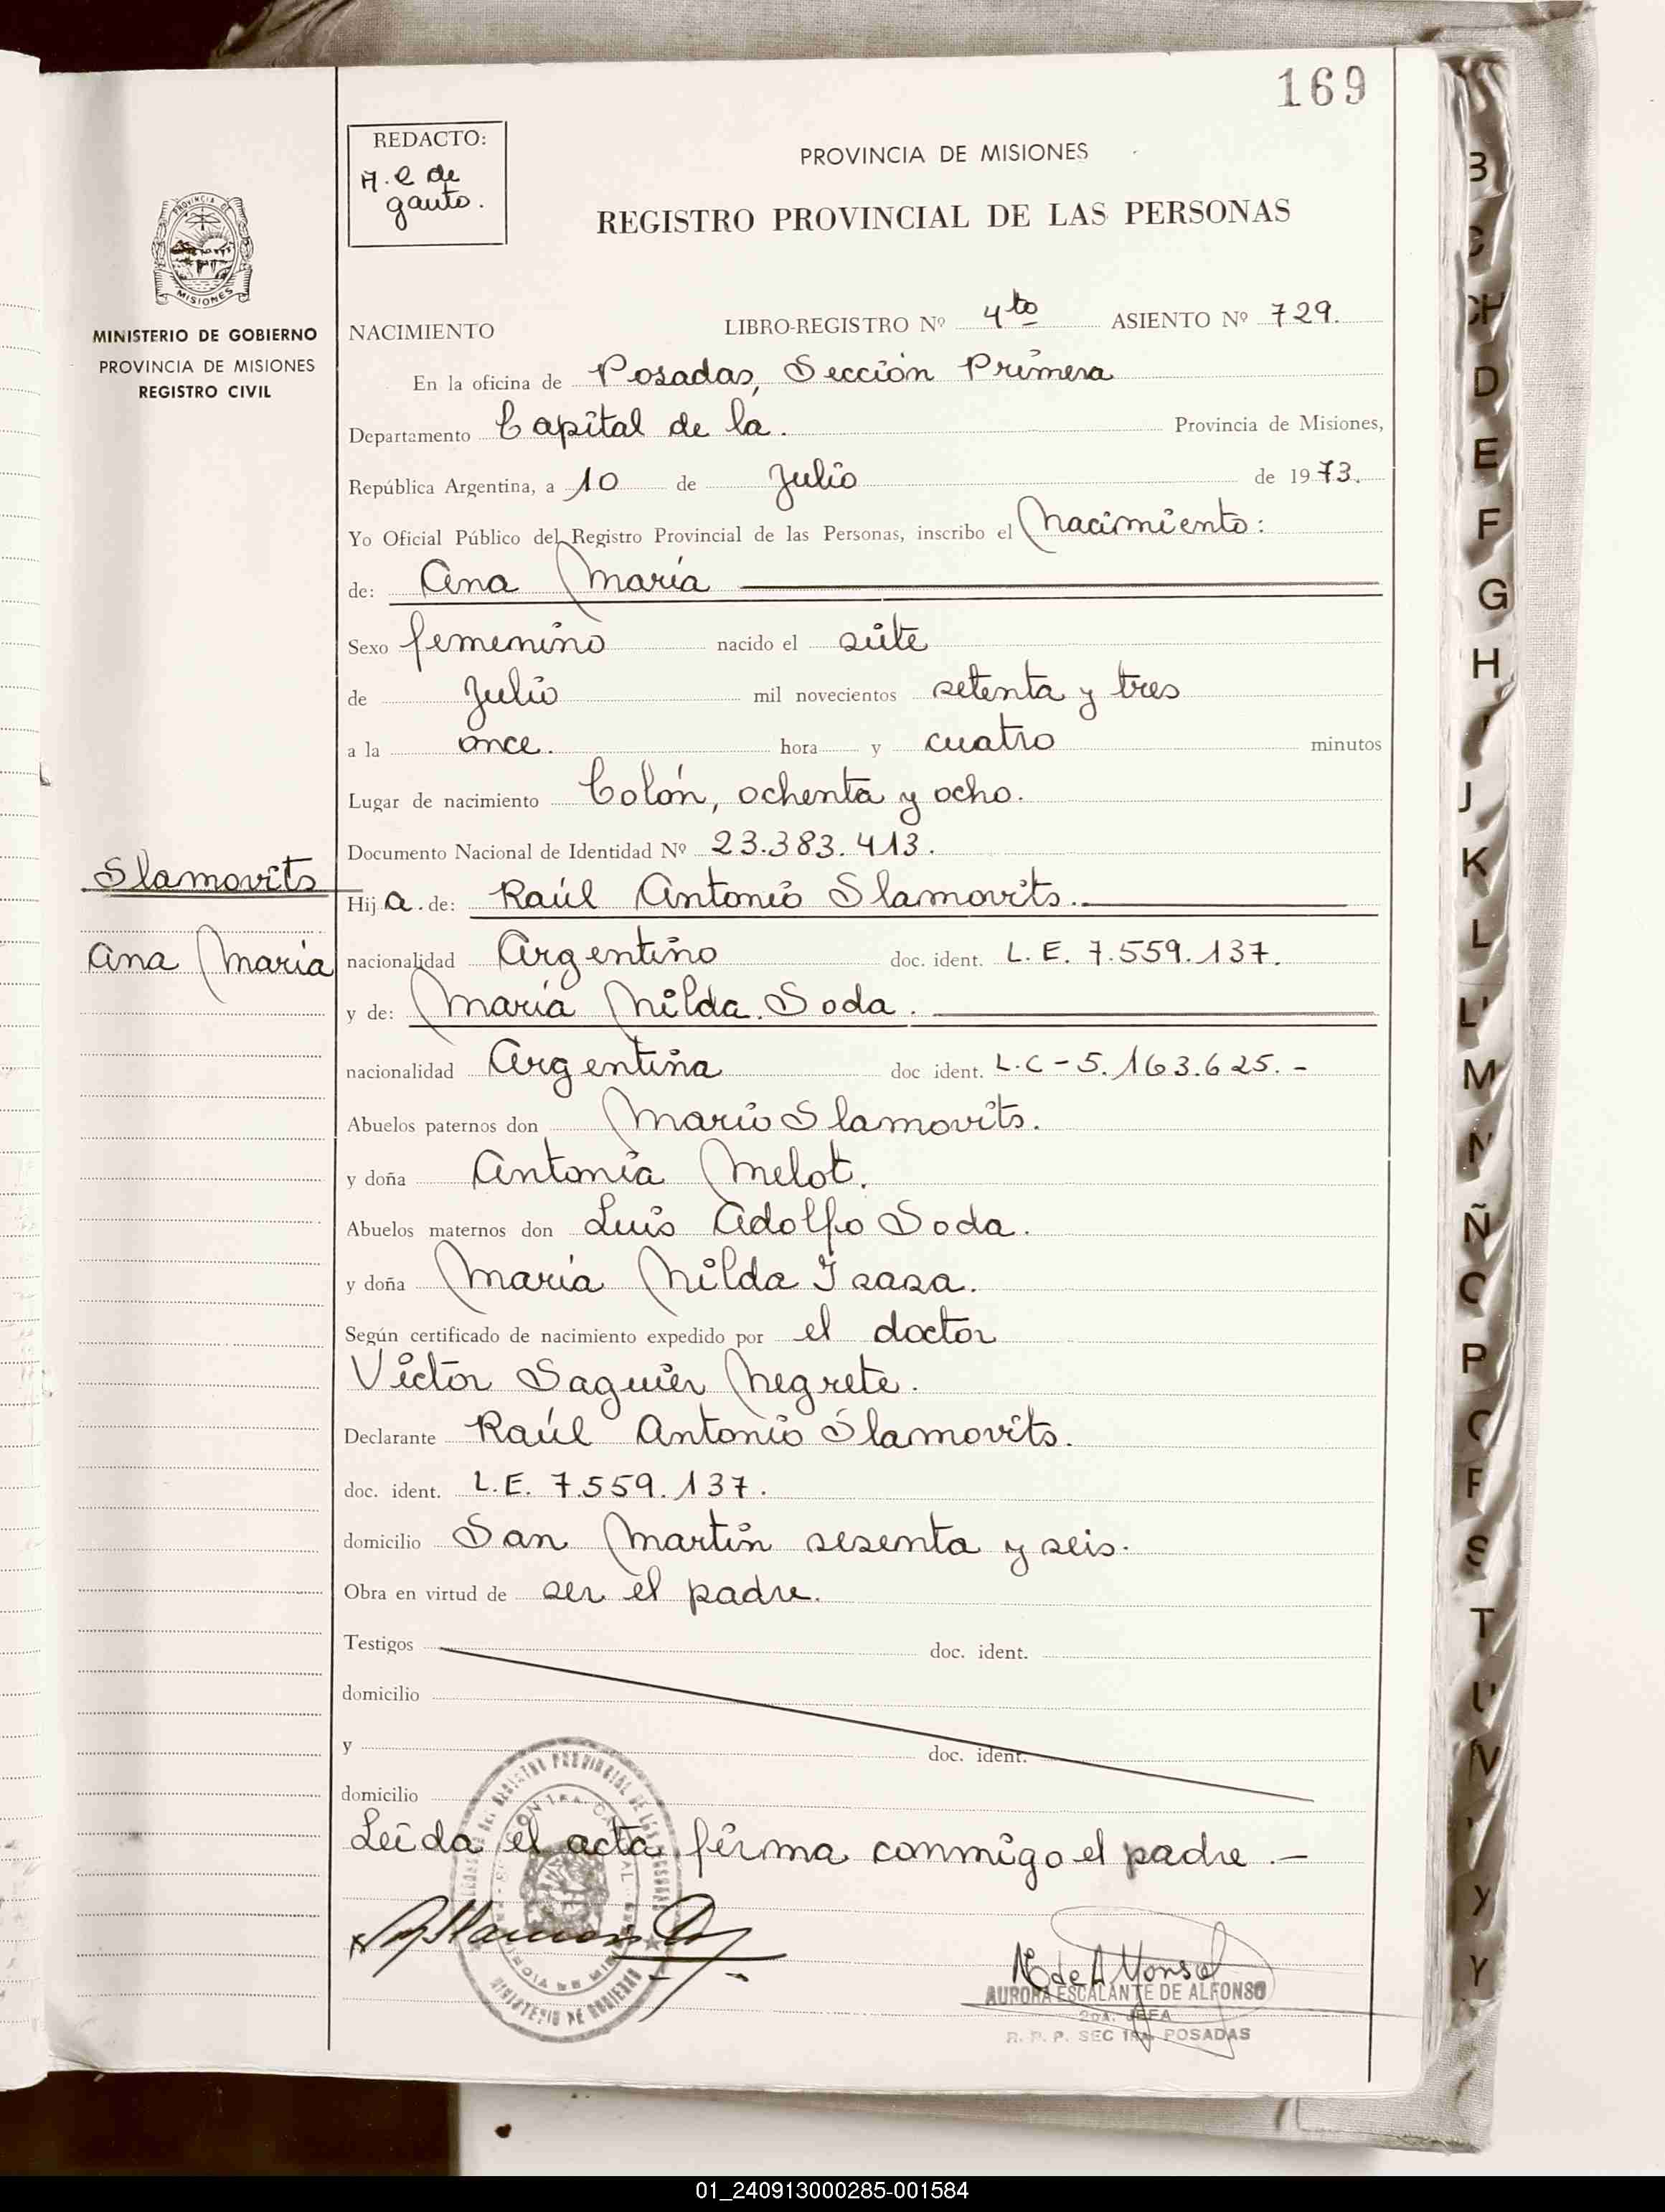 169
REDACTO:
A. E de
gauto.
PROVINCIA DE MISIONES
REGISTRO PROVINCIAL DE LAS PERSONAS
PROVINCIA DE
MISIONES
MINISTERIO DE GOBIERNO
PROVINCIA DE MISIONES
REGISTRO CIVIL
NACIMIENTO LIBRO-REGISTRO Nº 4to ASIENTO Nº 729.
En la oficina de Posadas, Sección Primera
Departamento Capital de la. Provincia de Misiones,
República Argentina, a 10 de Julio de 1973.
Yo Oficial Público del Registro Provincial de las Personas, inscribo el Nacimiento:
de: Ana María
Sexo femenino nacido el siete
de Julio mil novecientos setenta y tres
a la once. hora y cuatro minutos
Lugar de nacimiento Colón, ochenta y ocho.
Documento Nacional de Identidad Nº 23.383.413.
Slamovits
Hija. de: Raúl Antonio Slamovits.
Ana María
nacionalidad Argentino doc. ident. L.E. 7.559.137.
y de: María Nilda Soda.
nacionalidad Argentina doc ident. L.C-5.163.625.-
Abuelos paternos don Mario Slamovits.
y doña Antonia Melot.
Abuelos maternos don Luis Adolfo Soda.
y doña María Nilda Isasa.
Según certificado de nacimiento expedido por el doctor
Victor Saguier Negrete.
Declarante Raúl Antonio Slamovits.
doc. ident. L.E. 7.559.137.
domicilio San Martín sesenta y seis.
Obra en virtud de ser el padre.
Testigos doc. ident.
domicilio
y doc. ident.
domicilio
Leida el acta firma conmigo el padre.-
AURORA ESCALANTE DE ALFONSO
2DA. JEFA
R. P. P. SEC 1RA POSADAS
B
C
CH
D
E
F
G
H
I
J
K
L
LL
M
N
Ñ
O
P
Q
R
S
T
U
V
Y
01_240913000285-001584